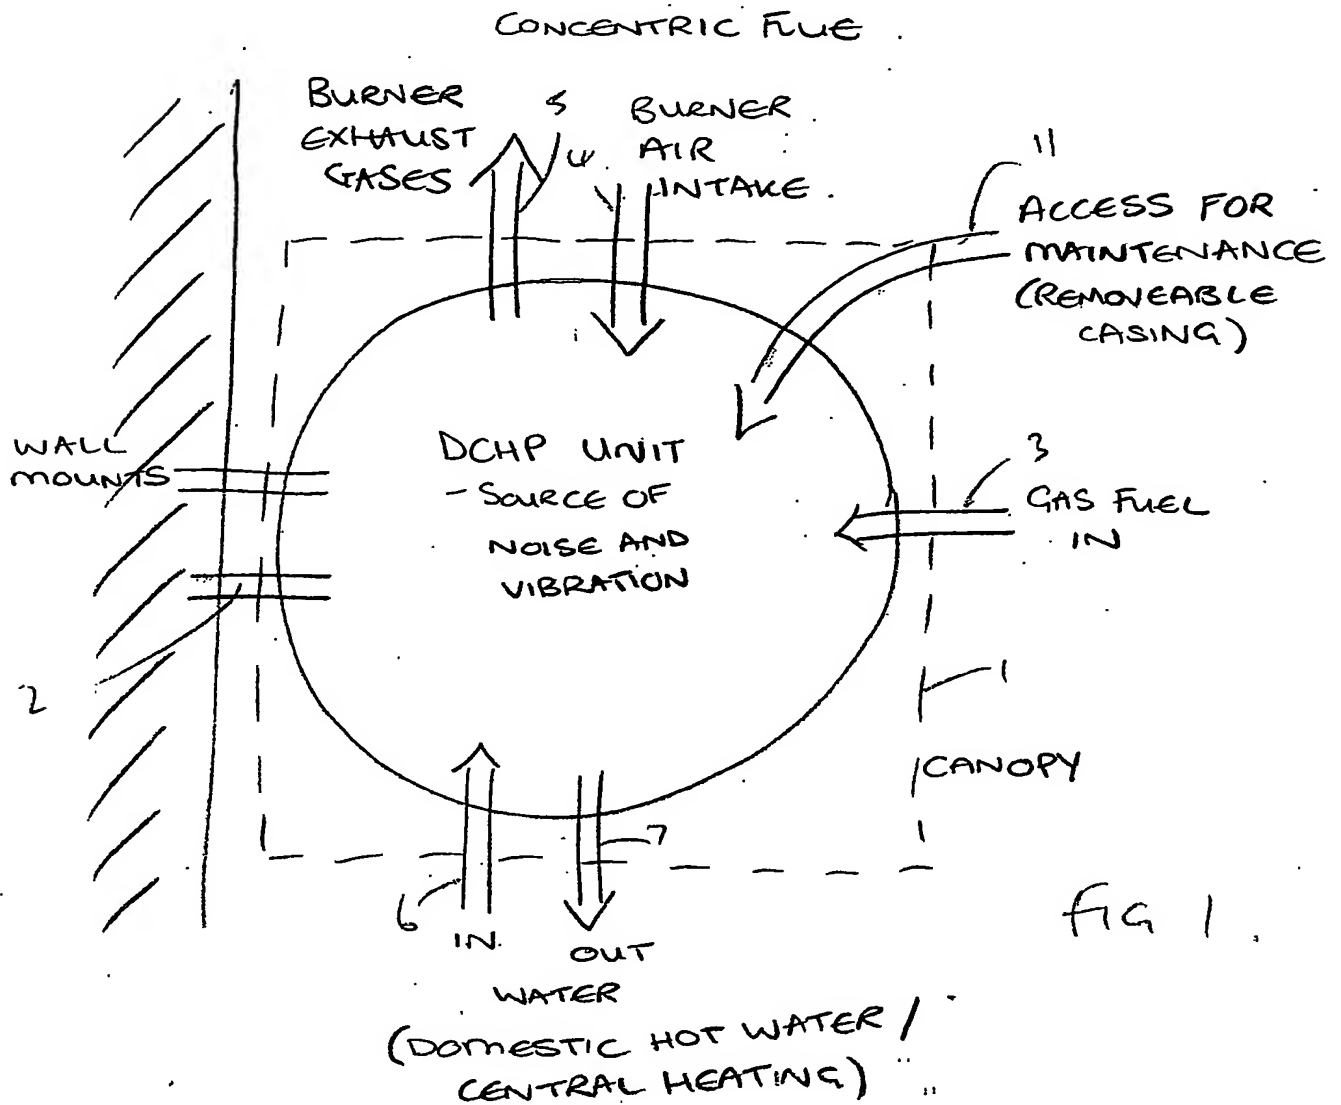 CONCENTRIC FLUE
BURNER
EXHAUST
GASES
5
4
BURNER
AIR
INTAKE
11
ACCESS FOR
MAINTENANCE
(REMOVEABLE
CASING)
WALL
MOUNTS
DCHP UNIT
- SOURCE OF
NOISE AND
VIBRATION
3
GAS FUEL
IN
2
1
CANOPY
6
7
IN
OUT
WATER
(DOMESTIC HOT WATER /
CENTRAL HEATING)
FIG 1.